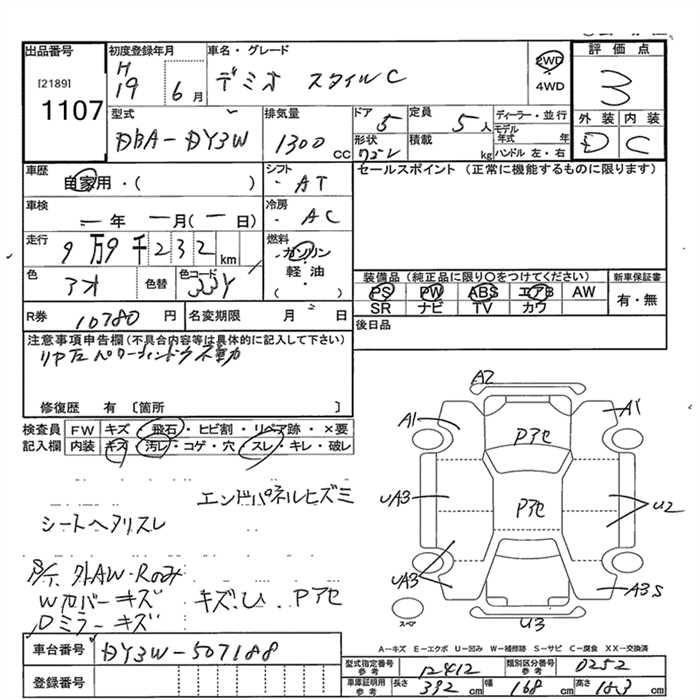 出品番号
[2189]
1107
初度登録年月
H
19 6月
車名・グレード
デミオ スタイルC
2WD
・
4WD
評価点
3
外装 内装
D C
型式
DBA-DY3W
排気量
1300 cc
ドア 5
形状
ワゴン
定員
5人
積載
kg
ディーラー・並行
モデル
年式 年
ハンドル 左・右
車歴
自家用・( )
シフト
・AT
車検
ー年 ー月(ー日)
冷房
・AC
走行
9万9千232km
燃料
ガソリン
・
軽油
( )
色
アオ
色替
色コード
33Y
R券
10780円
名変期限
月 日
セールスポイント(正常に機能するものに限ります)
装備品(純正品に限り○をつけてください)
PS PW ABS エアB AW
SR ナビ TV カワ
新車保証書
有・無
後日品
注意事項申告欄(不具合内容等は具体的に記入して下さい)
リヤ左パワーウィンドウ不動
修復歴 有 〔箇所 〕
検査員
記入欄
FW キズ・飛石・ヒビ割・リペア跡・×要
内装 キズ・汚レ・コゲ・穴・スレ・キレ・破レ
エンドパネルヒズミ
シートヘタリスレ
外AW・Rのみ
Wカバーキズ キズ.U Pアセ
Dミラーキズ
A2
A1 A1
Pアセ
UA3 Pアセ U2
UA3 A3S
スペア
U3
A-キズ E-エクボ U-凹み W-補修跡 S-サビ C-腐食 XX-交換済
車台番号
DY3W-507188
登録番号
型式指定番号
参考
12412
類別区分番号
参考
0252
車庫証明用
参考
長さ 392cm 幅 168cm 高さ 153cm